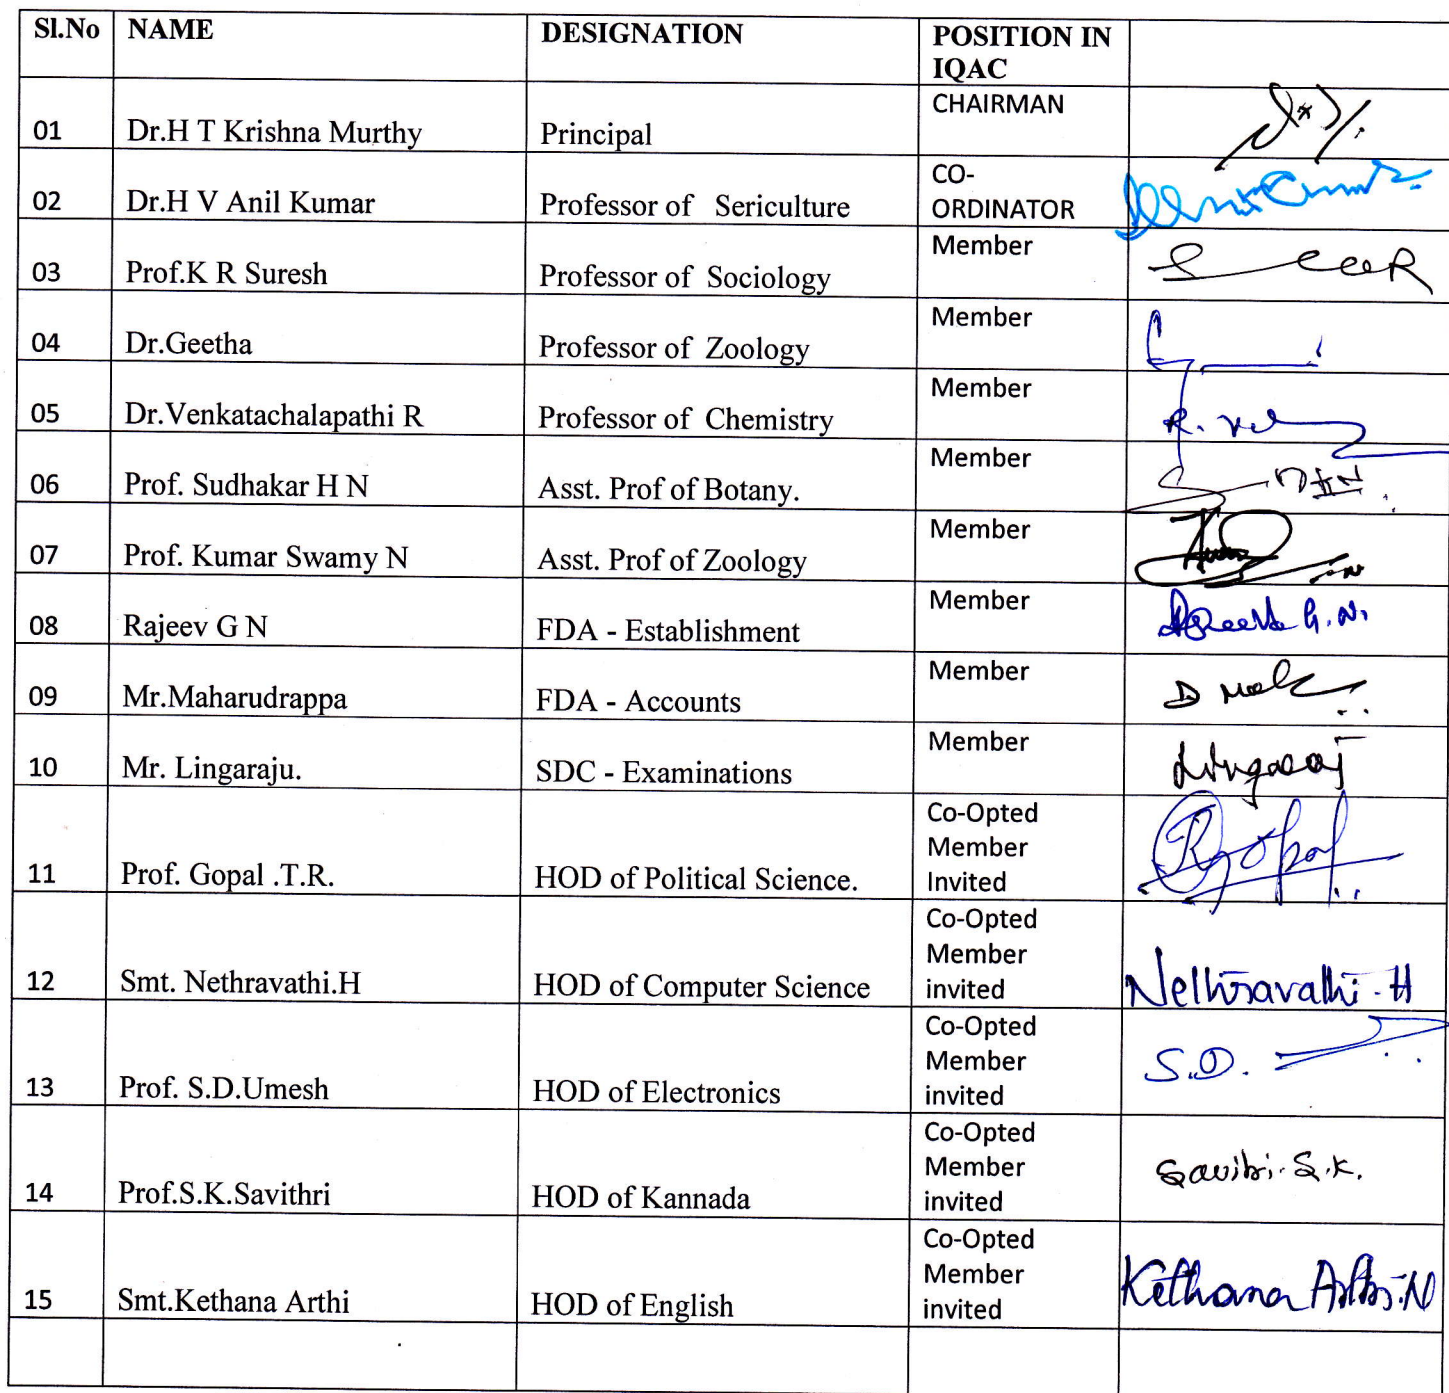 Sl.No NAME DESIGNATION POSITION IN
IQAC
01 Dr.H T Krishna Murthy Principal CHAIRMAN
02 Dr.H V Anil Kumar Professor of Sericulture CO-
ORDINATOR
03 Prof.K R Suresh Professor of Sociology Member
04 Dr.Geetha Professor of Zoology Member
05 Dr.Venkatachalapathi R Professor of Chemistry Member
06 Prof. Sudhakar H N Asst. Prof of Botany. Member
07 Prof. Kumar Swamy N Asst. Prof of Zoology Member
08 Rajeev G N FDA - Establishment Member G.N.
09 Mr.Maharudrappa FDA - Accounts Member
10 Mr. Lingaraju. SDC - Examinations Member
11 Prof. Gopal .T.R. HOD of Political Science. Co-Opted
Member
Invited
12 Smt. Nethravathi.H HOD of Computer Science Co-Opted
Member
invited Nethravathi.H
13 Prof. S.D.Umesh HOD of Electronics Co-Opted
Member
invited S.D.
14 Prof.S.K.Savithri HOD of Kannada Co-Opted
Member
invited Savitri.S.K.
15 Smt.Kethana Arthi HOD of English Co-Opted
Member
invited Kethana Arthi.N